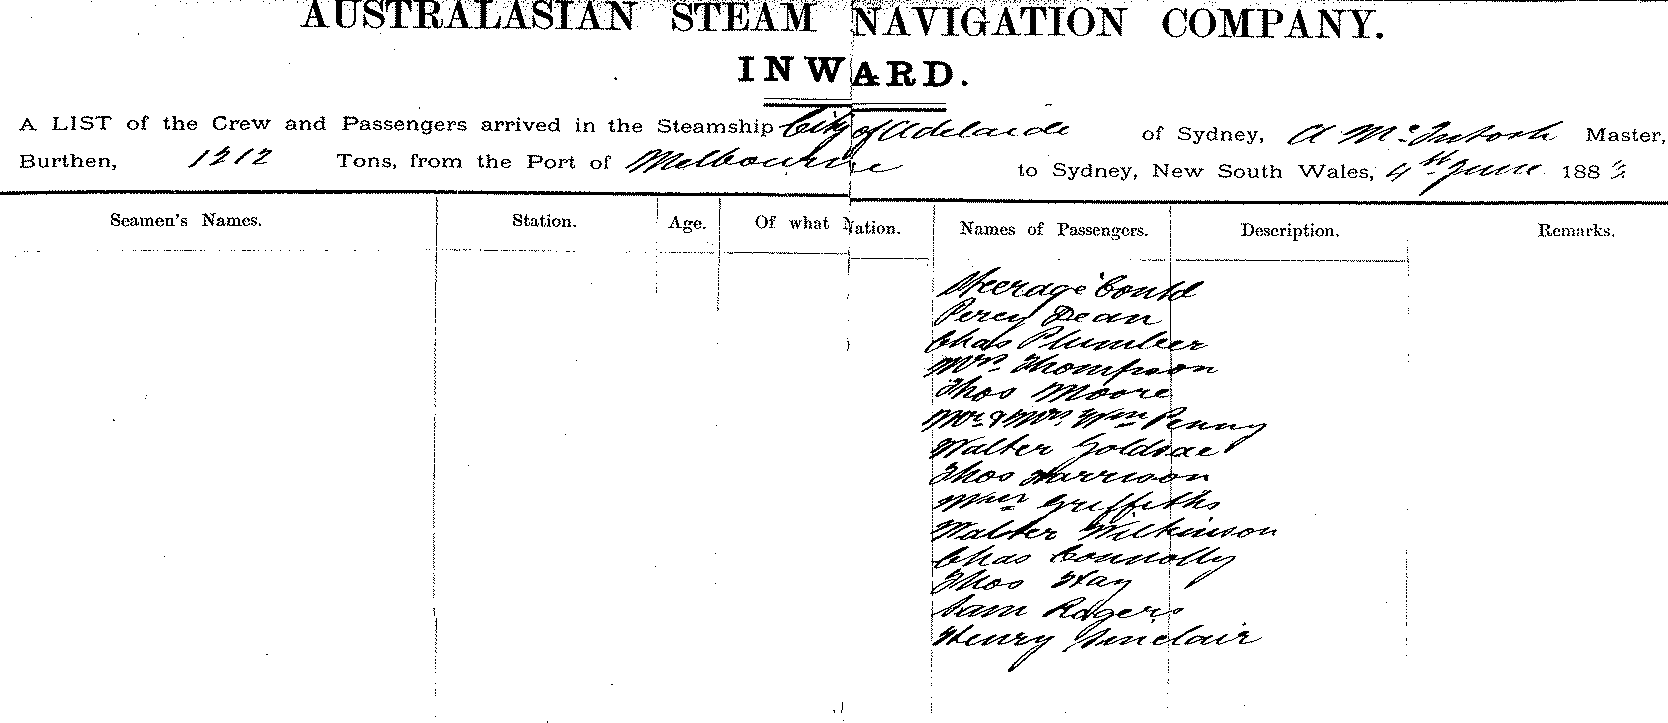 AUSTRALASIAN STEAM NAVIGATION COMPANY.
INWARD.
A LIST of the Crew and Passengers arrived in the Steamship City of Adelaide of Sydney, A McIntosh Master,
Burthen, 1212 Tons, from the Port of Melbourne to Sydney, New South Wales, 4th June 188
Seamen's Names. Station. Age. Of what Nation. Names of Passengers. Description. Remarks.
Steerage Contd
Percy Dean
Chas Plumber
Mrs Thompson
Thos Moore
Mr & Mrs Wm Penny
Walter
Thos Harrison
Griffiths
Walter Wilkinson
Chas Connolly
Thos Hay
Sam Rogers
Henry Sinclair